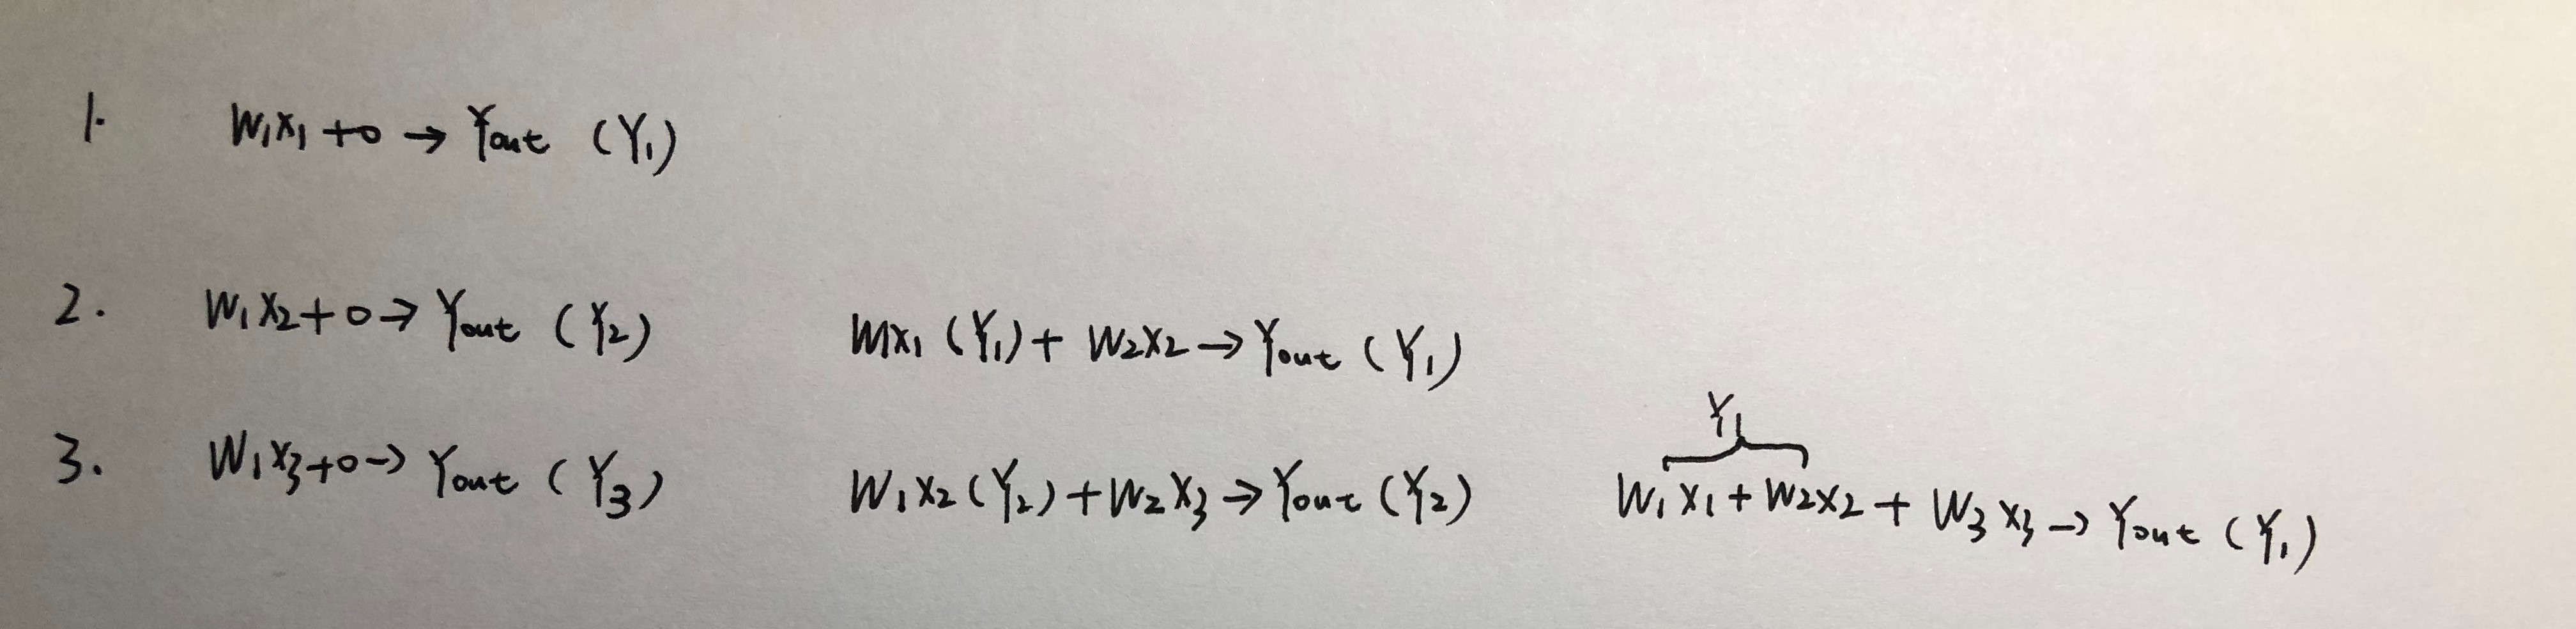 1. W₁X₁+0→Yout (Y₁)
2. W₁X₂+0→Yout (Y₂) W1X₁(Y₁)+W₂X₂→Yout (Y₁)
Y₁
3. W₁X₃+0→Yout (Y₃) W₁X₂(Y₂)+W₂X₃→Yout (Y₂) W₁X₁+W₂X₂+W₃X₃→Yout (Y₁)